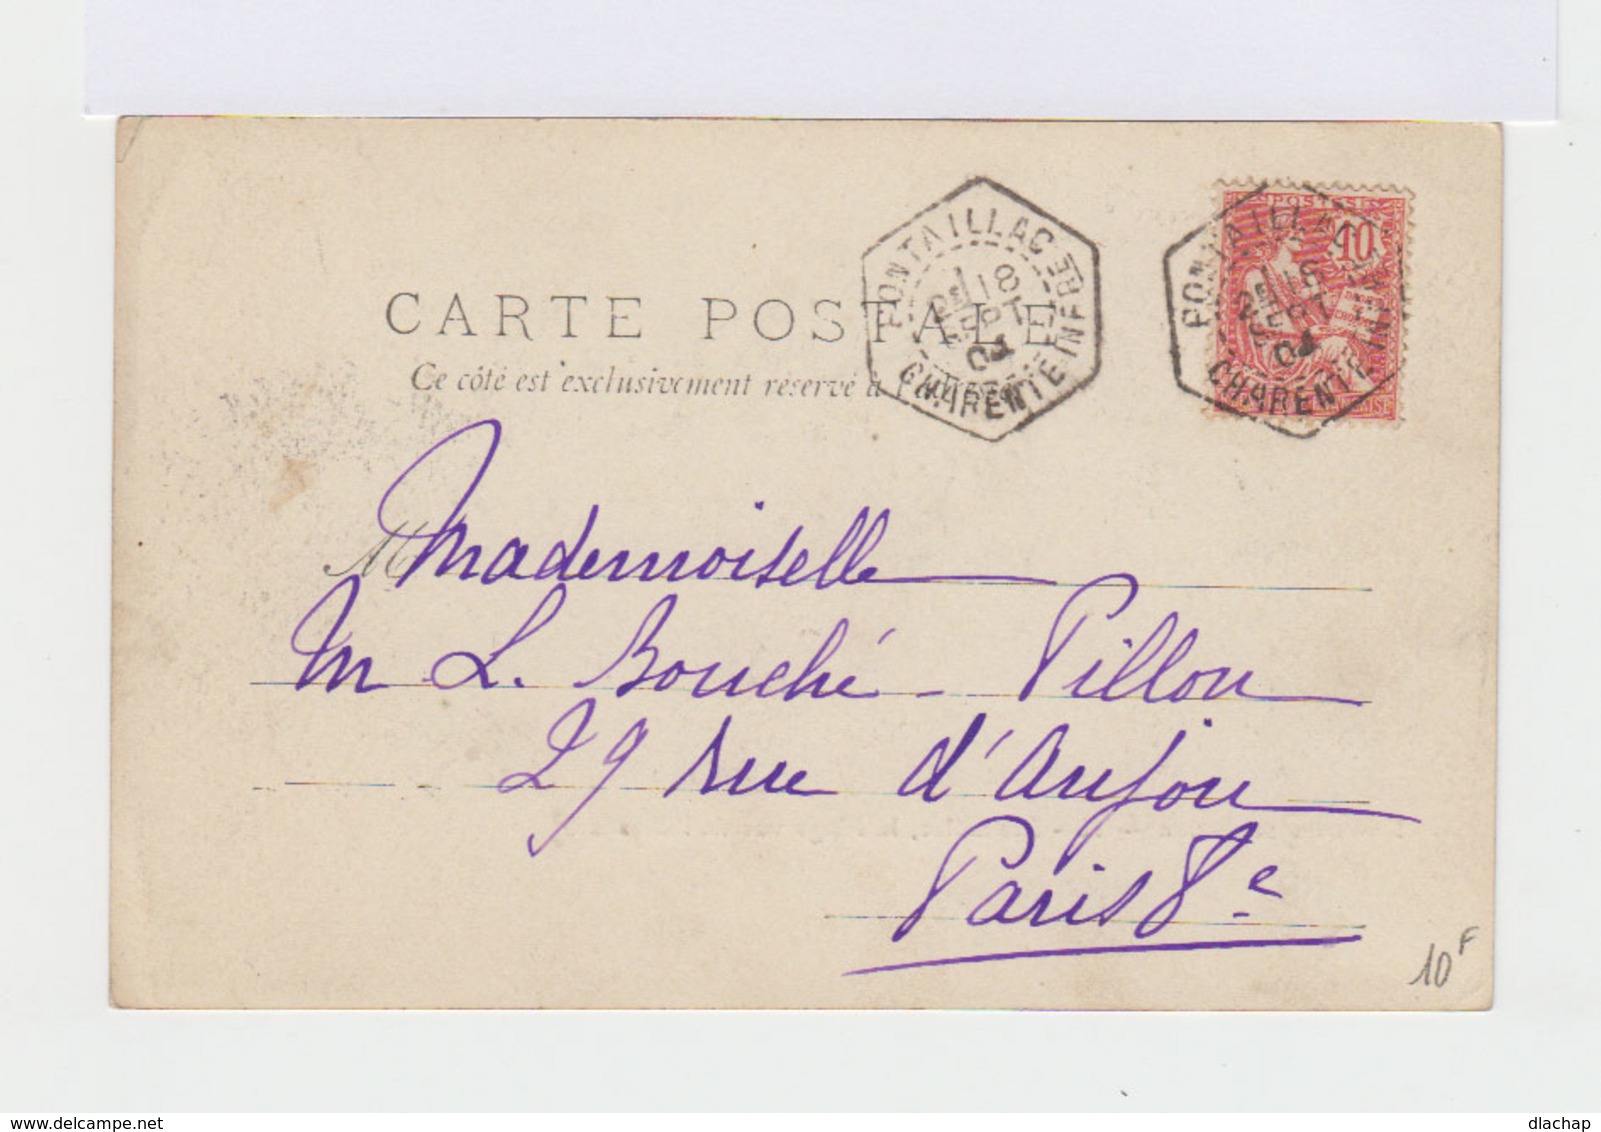 CARTE POSTALE
Ce côté est exclusivement réservé à l'adresse
PONTAILLAC
18
SEPT
04
CHARENTE INFRE
POSTES
10
PONTAILLAC
18
SEPT
04
CHARENTE INFRE
M
Mademoiselle
M L. Bouché - Pillon
29 rue d'Anjou
Paris 8e
10F
delcampe.net
dlachap